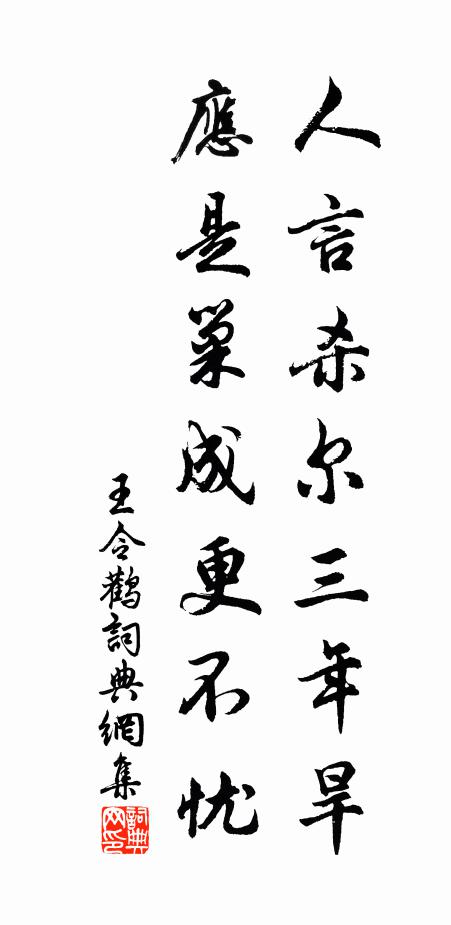 人言杀尔三年旱
應是巢成更不忧
王令鸛詞典網集
詞典网印